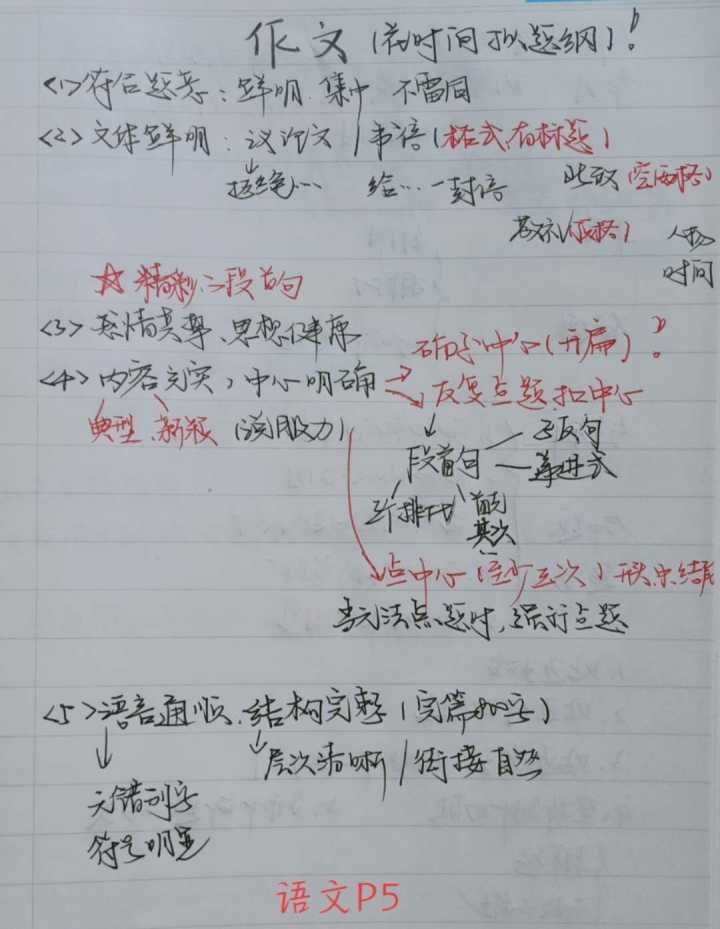 作文(花时间拟题纲)!
<1>符合题意:鲜明.集中 不雷同
<2>文体鲜明:议论文/书信(格式,有标题)
拒绝… 给…一封信 此致(空两格)
敬礼(顶格)
时间
☆精彩:段首句
<3>感情真挚、思想健康
<4>内容充实,中心明确→确定中心(开篇)!
反复点题,扣中心
典型、新颖(说服力)
段首句—递进式
三个排比 首先
其次
点中心(至少三次)开头中结尾
当无法点题时,强行点题
<5>语言通顺.结构完整(完篇800字)
层次清晰/衔接自然
无错别字
符号明显
语文P5